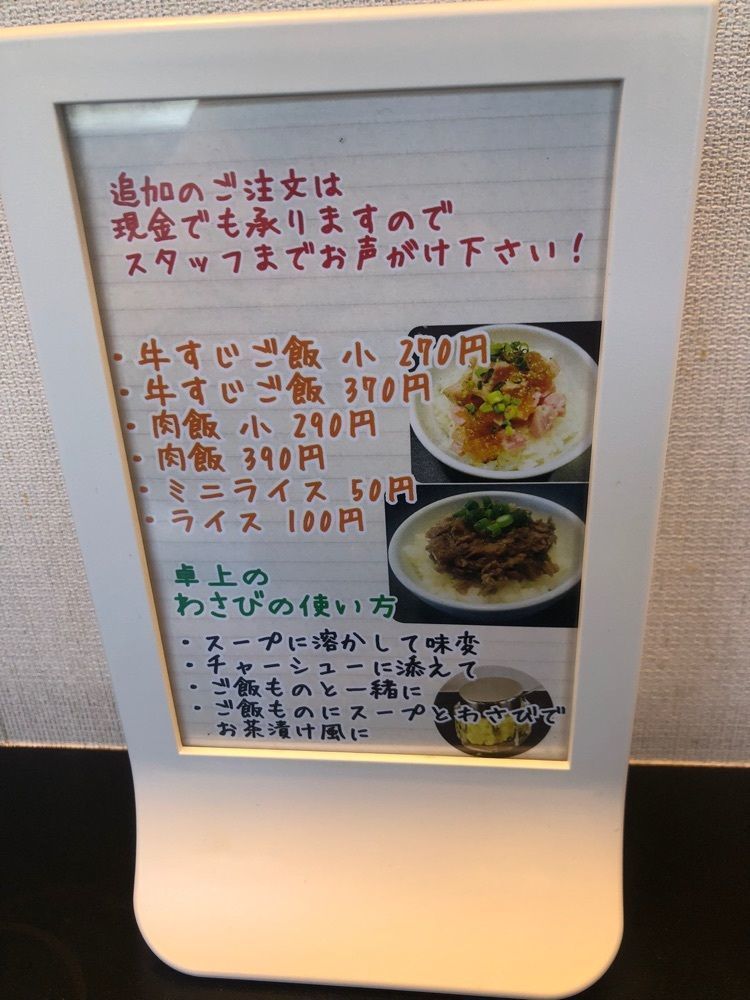 追加のご注文は
現金でも承りますので
スタッフまでお声がけ下さい！
・牛すじご飯 小 270円
・牛すじご飯 370円
・肉飯 小 290円
・肉飯 390円
・ミニライス 50円
・ライス 100円
卓上の
わさびの使い方
・スープに溶かして味変
・チャーシューに添えて
・ご飯ものと一緒に
・ご飯ものにスープとわさびで
お茶漬け風に